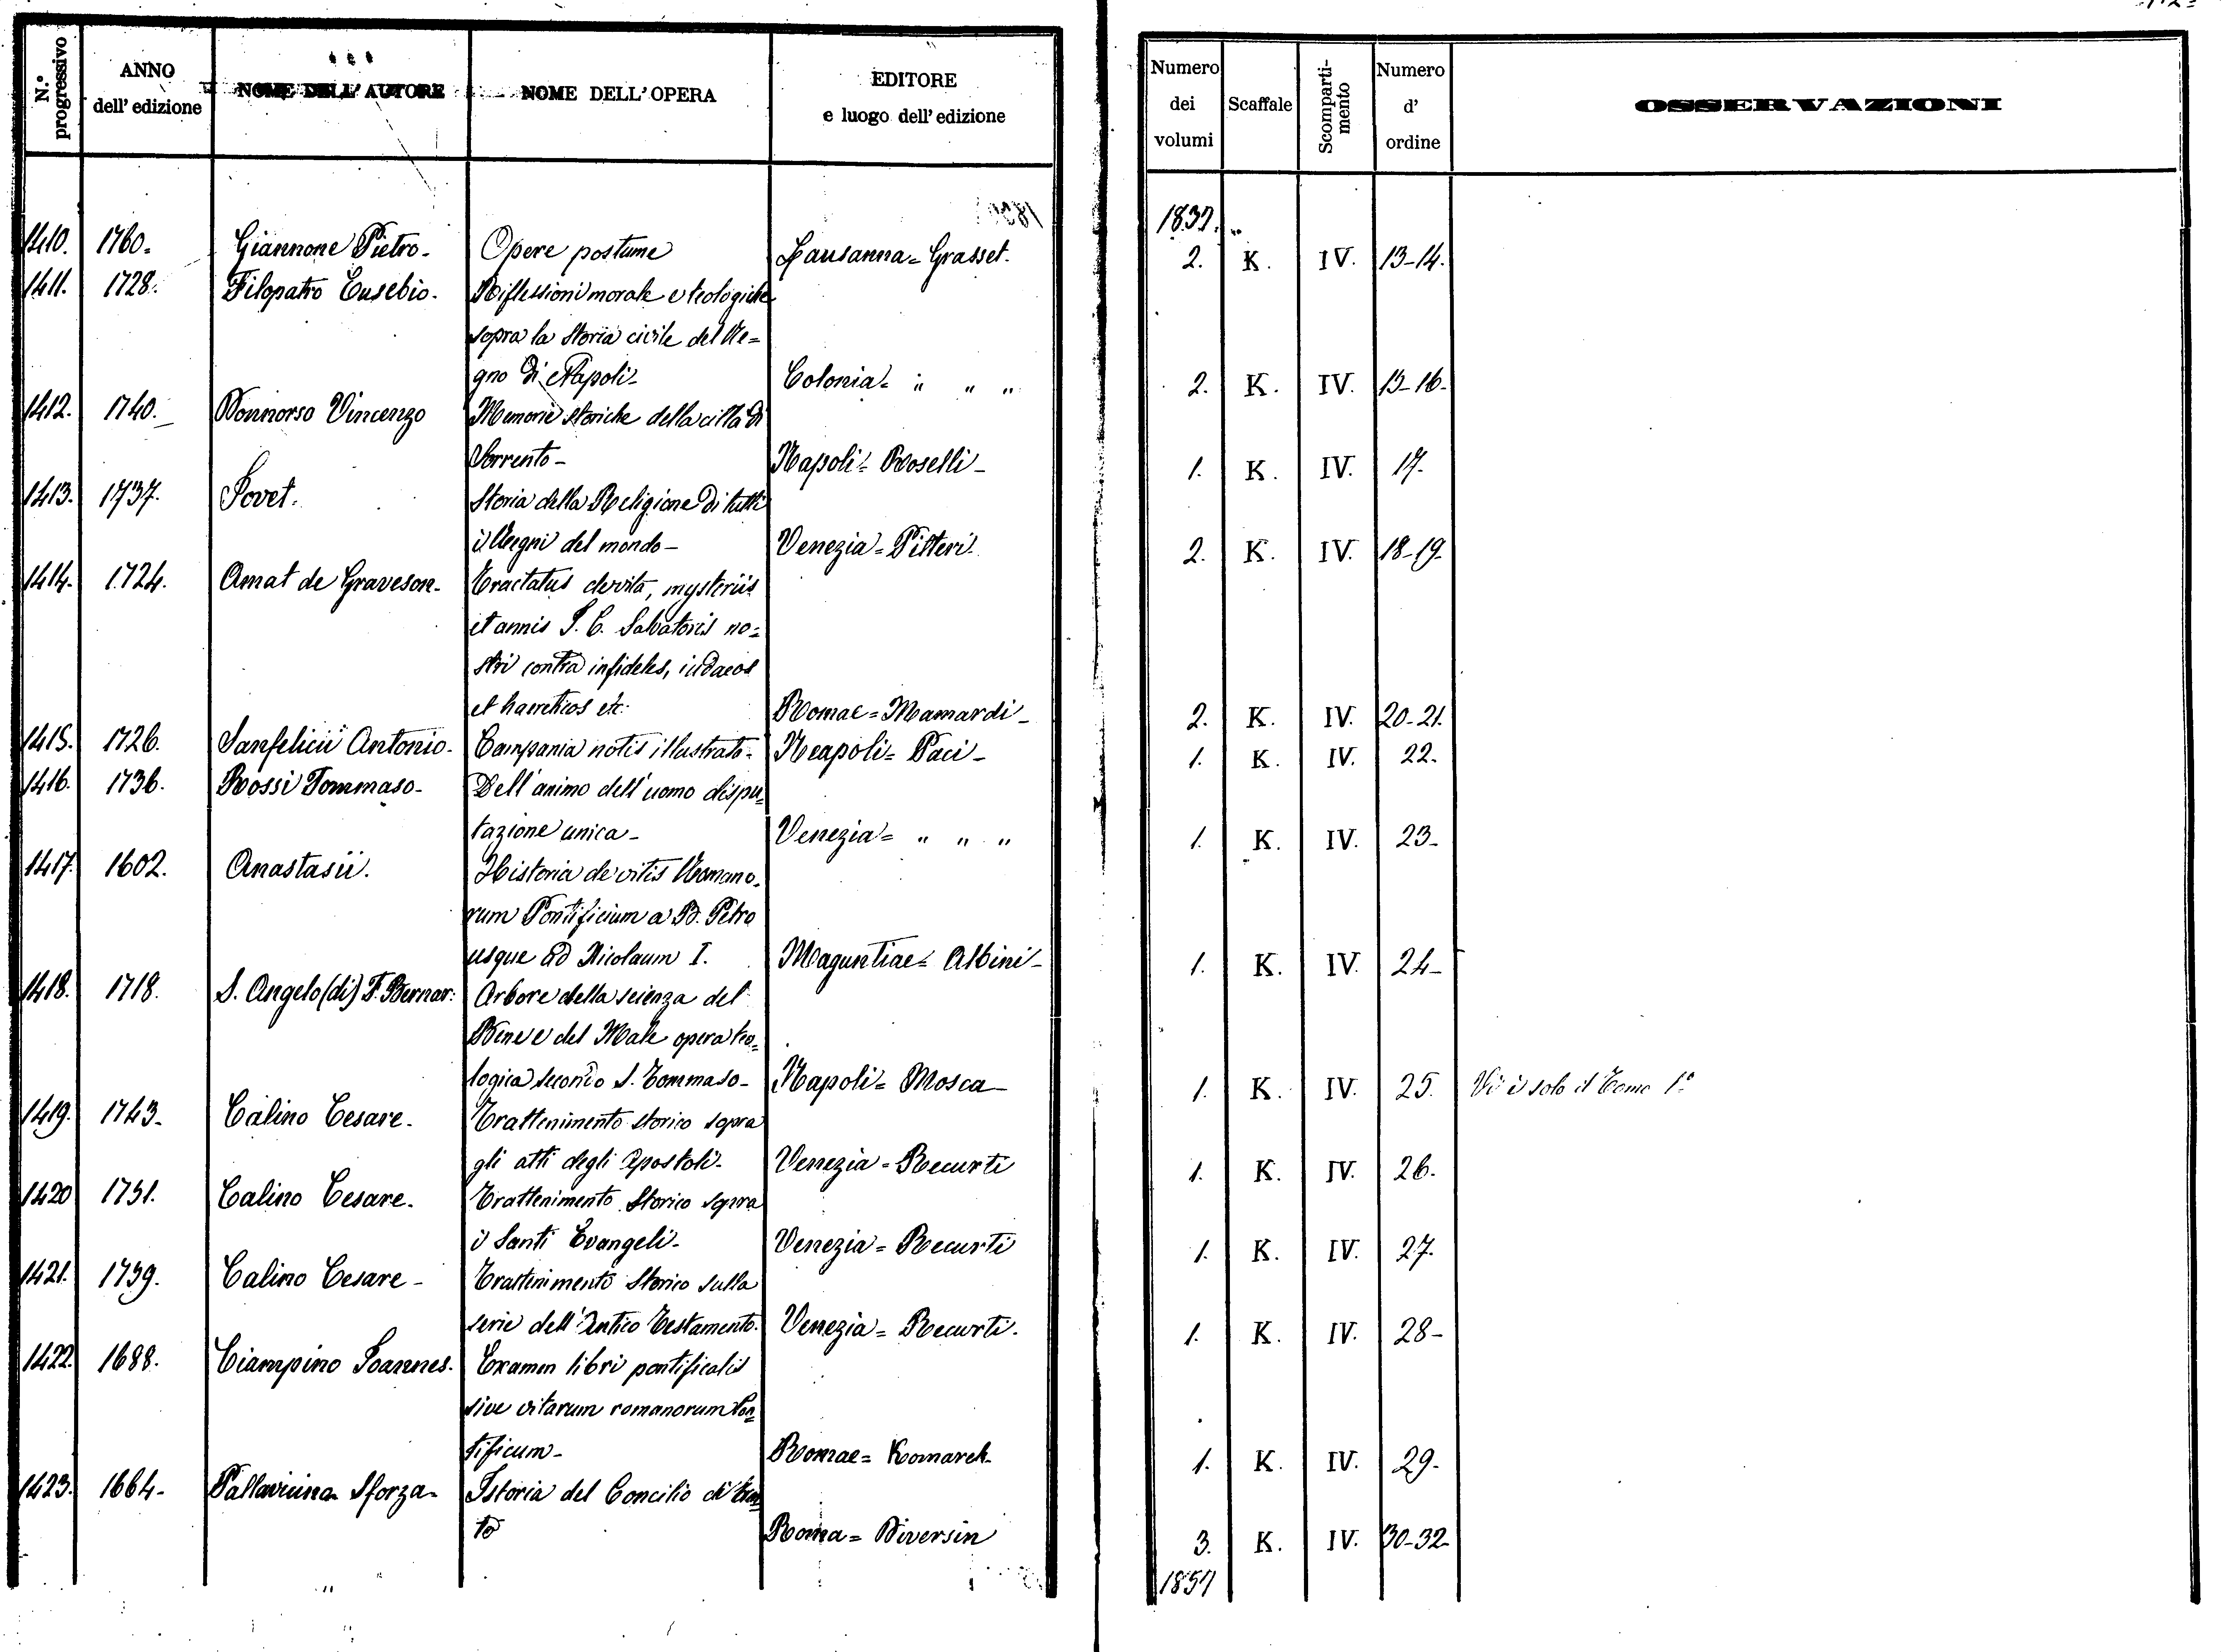 N.° progressivo
ANNO dell' edizione
NOME DELL' AUTORE
NOME DELL' OPERA
EDITORE e luogo dell' edizione
Numero dei volumi
Scaffale
Scompartimento
Numero d' ordine
OSSERVAZIONI
1837.
1410. 1760. Giannone Pietro. Opere postume Lausanna = Grasset. 2. K. IV. 13-14.
1411. 1728. Filopatro Eusebio. Riflessioni morale e teologiche
sopra la Storia civile del Re=
gno di Napoli- Colonia = " " " 2. K. IV. 15-16.
1412. 1740. Donnorso Vincenzo Memorie Storiche della città di
Sorrento- Napoli = Roselli- 1. K. IV. 17.
1413. 1737. Jovet. Storia della Religione di tutti
i Regni del mondo- Venezia = Pitteri. 2. K. IV. 18-19.
1414. 1724. Amat de Graveson- Tractatus de vita, mysteriis
et annis J. C. Salvatoris no=
stri contra infideles, iudaeos
et haereticos etc: Romae = Mamardi- 2. K. IV. 20-21.
1415. 1726. Sanfelicii Antonio- Campania notis illustrata- Neapoli = Paci- 1. K. IV. 22.
1416. 1736. Rossi Tommaso- Dell'animo dell'uomo dispu=
tazione unica- Venezia = " " " 1. K. IV. 23-
1417. 1602. Anastasii. Historia de vitis Romano=
rum Pontificium a B. Petro
usque ad Nicolaum I. Maguntiae = Albini- 1. K. IV. 24-
1418. 1718. S. Angelo (di) F. Bernar: Arbore della scienza del
Bene e del Male opera teo=
logica secondo S. Tommaso- Napoli = Mosca- 1. K. IV. 25. Vi è solo il Tomo 1°
1419. 1743- Calino Cesare- Trattenimento storico sopra
gli atti degli Apostoli- Venezia = Recurti 1. K. IV. 26.
1420 1751. Calino Cesare. Trattenimento Storico sopra
i Santi Evangeli- Venezia = Recurti 1. K. IV. 27.
1421. 1739. Calino Cesare- Trattenimento Storico sulla
serie dell'Antico Testamento. Venezia = Recurti. 1. K. IV. 28-
1422. 1688. Ciampino Joannes. Examen libri pontificalis
sive vitarum romanorum Pon=
tificum- Romae = Komarek- 1. K. IV. 29-
1423. 1664- Pallavicino Sforza- Istoria del Concilio di Tren=
to Roma = Biversin 3. K. IV. 30-32-
1857